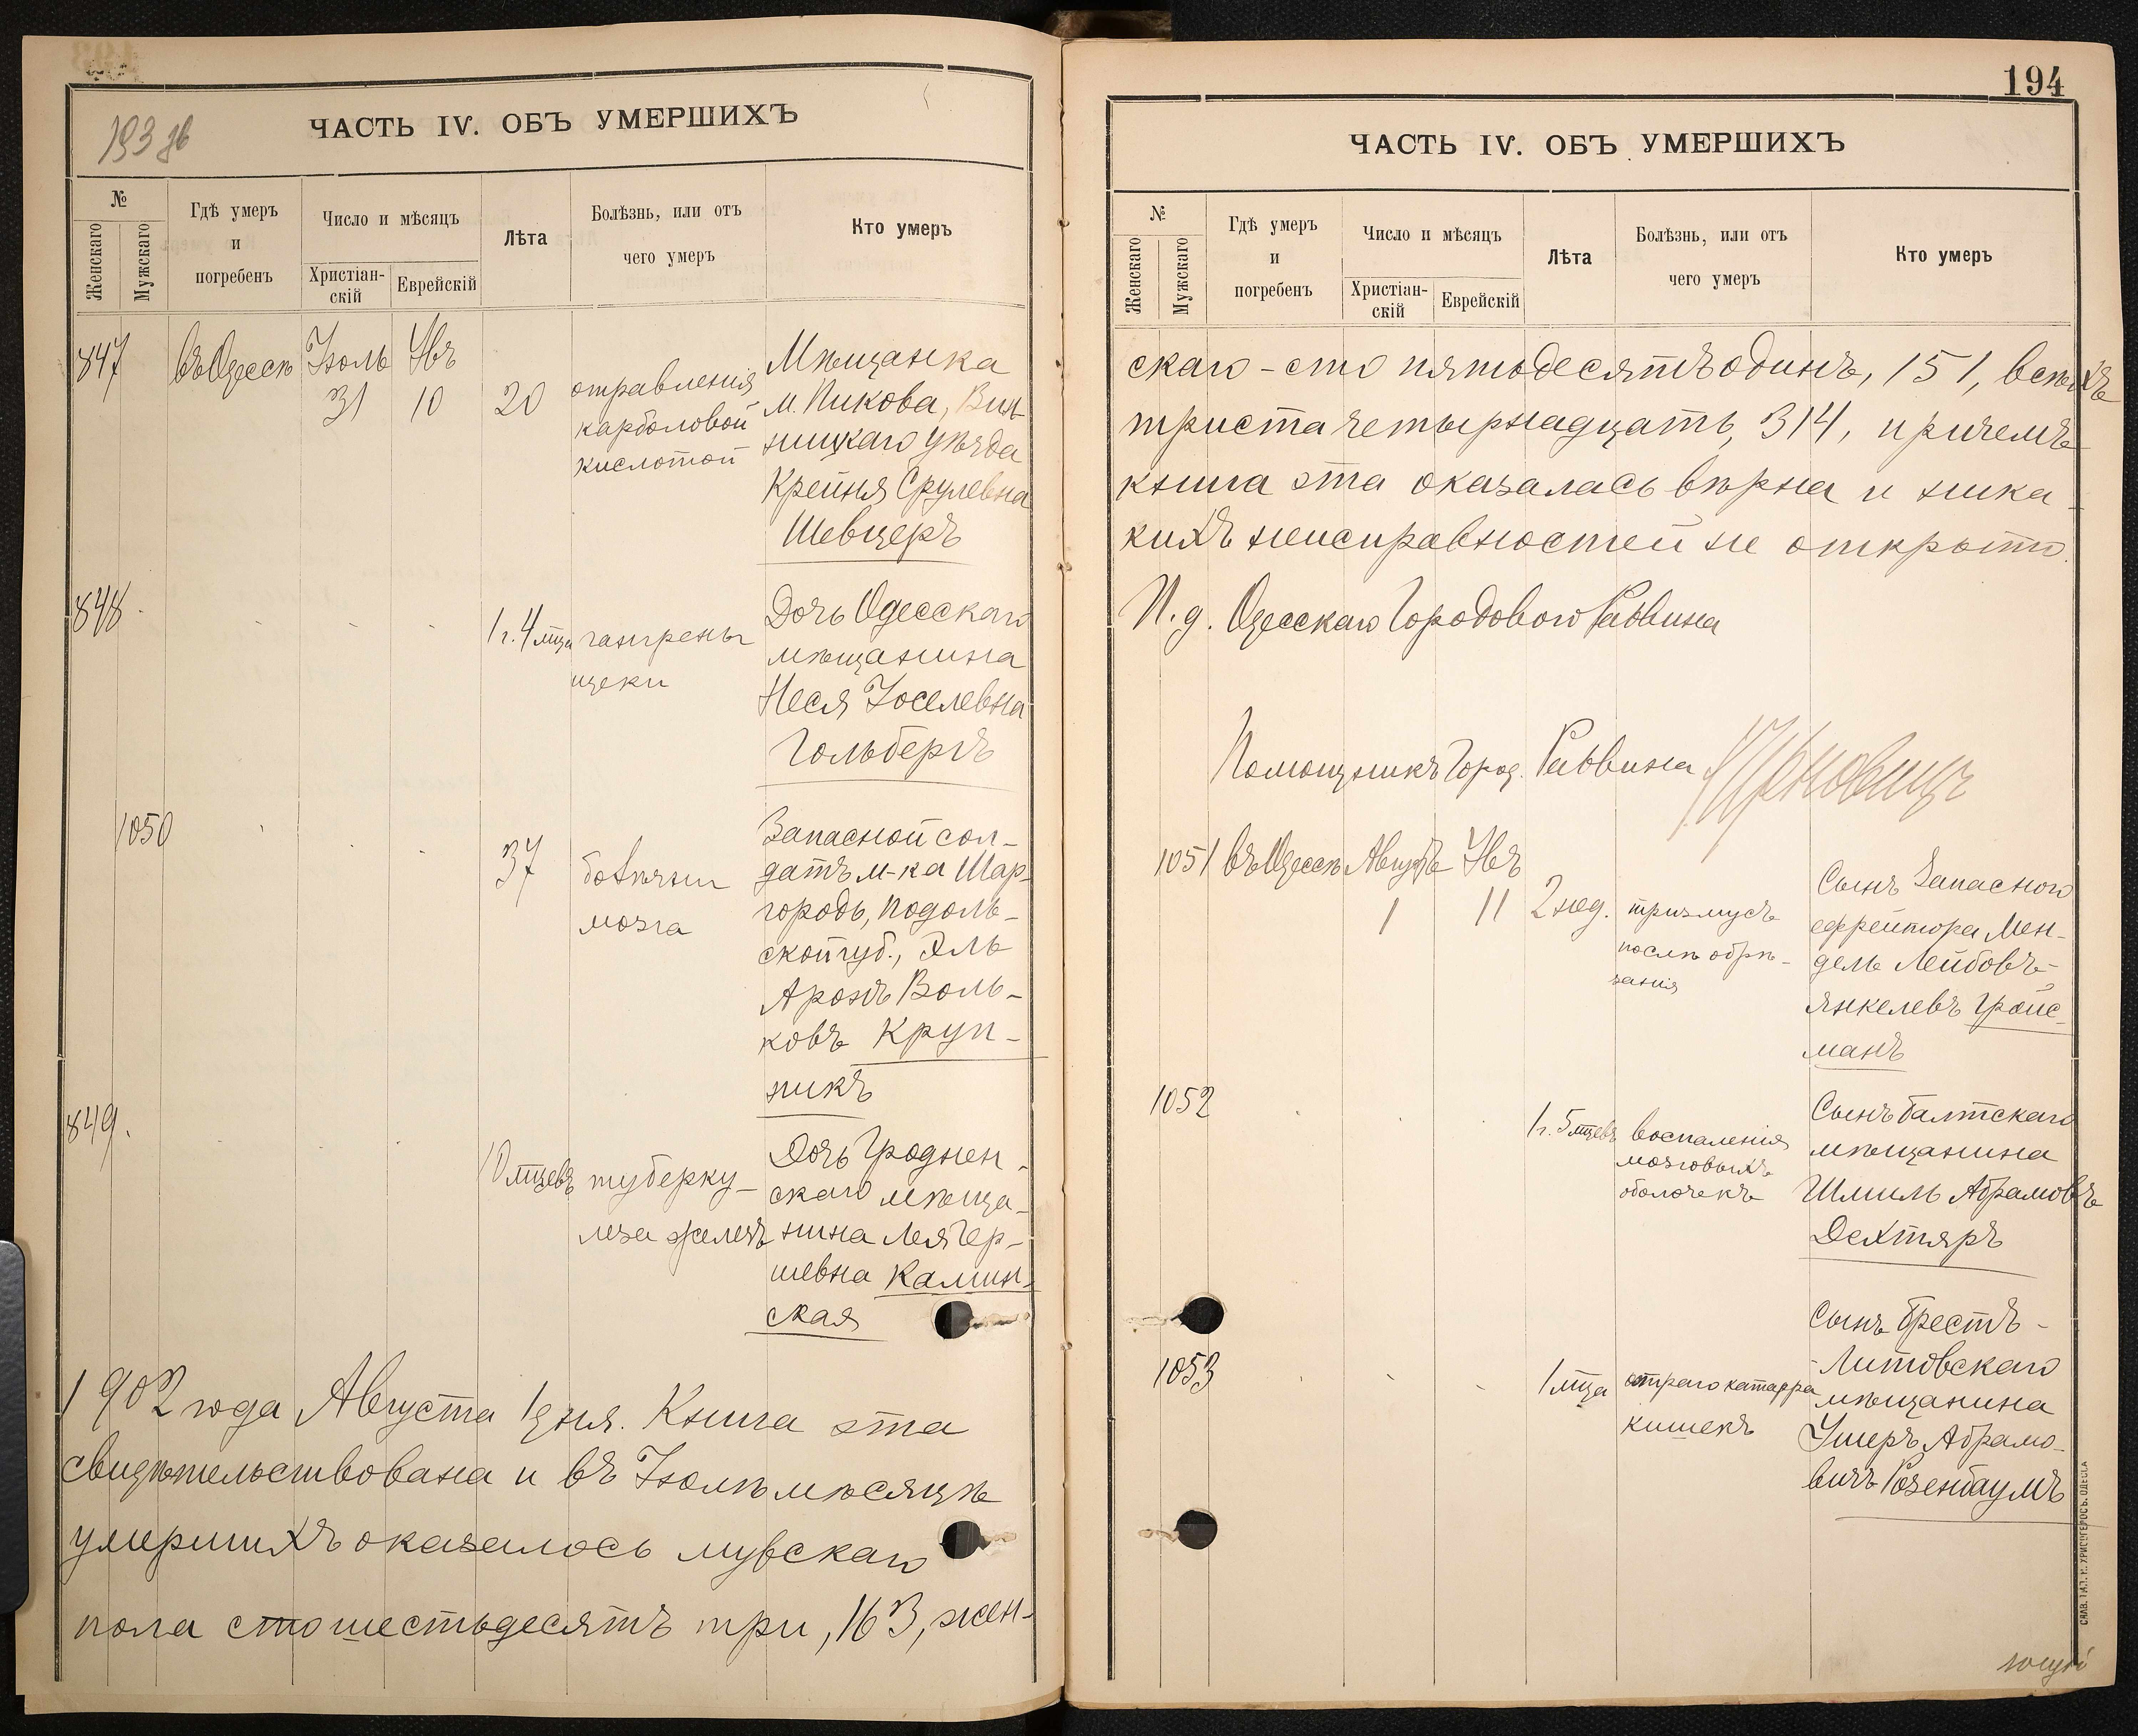 193 об
ЧАСТЬ IV. ОБЪ УМЕРШИХЪ
№
Женскаго
Мужскаго
Гдѣ умеръ
и
погребенъ
Число и мѣсяцъ
Христіан-
скій
Еврейскій
Лѣта
Болѣзнь, или отъ
чего умеръ
Кто умеръ
847
въ Одессѣ
Іюль
31
Увъ
10
20
отравленія
карболовой
кислотой
Мѣщанка
м. Пикова, Вин-
ницкаго уѣзда
Крейня Срулевна
Шевцеръ
848
1 г. 4 мца
гангрены
щеки
Дочь Одесскаго
мѣщанина
Неся Іоселевна
Гольбергъ
1050
37
мозга
Запасной сол-
датъ м-ка Шар-
городъ, Подоль-
ской губ., Эль
Аронъ Воль-
ковъ Круп-
никъ
849.
10 мцевъ
туберку-
леза желѣзъ
Дочь Гроднен-
скаго мѣща-
нина Лея Гер-
шевна Камин-
ская
1902 года Августа 1 дня. Книга эта
свидѣтельствована и въ Іюлѣ мѣсяцѣ
умершихъ оказалось мужскаго
пола сто шестьдесятъ три, 163, жен-
194
ЧАСТЬ IV. ОБЪ УМЕРШИХЪ
№
Женскаго
Мужскаго
Гдѣ умеръ
и
погребенъ
Число и мѣсяцъ
Христіан-
скій
Еврейскій
Лѣта
Болѣзнь, или отъ
чего умеръ
Кто умеръ
скаго - сто пятьдесятъ одинъ, 151, всѣхъ
триста четырнадцать, 314, причемъ
книга эта оказалась вѣрна и ника-
кихъ неисправностей не открыто.
И. д. Одесскаго Городового Раввина
Помощникъ Город. Раввина
1051
въ Одессѣ
Августъ
1
Увъ
11
2 нед.
тризмусъ
послѣ обрѣ-
занія
Сынъ Запасного
ефрейтора Мен-
дель Лейбовъ-
Янкелевъ Гройс-
манъ
1052
1 г. 5 мцевъ
воспаленія
мозговыхъ
оболочекъ
Сынъ Балтскаго
мѣщанина
Шмиль Абрамовъ
Дехтяръ
1053
1 мца
остраго катарра
кишекъ
Сынъ Брестъ-
-Литовскаго
мѣщанина
Ушеръ Абрамо-
вичъ Розенбаумъ